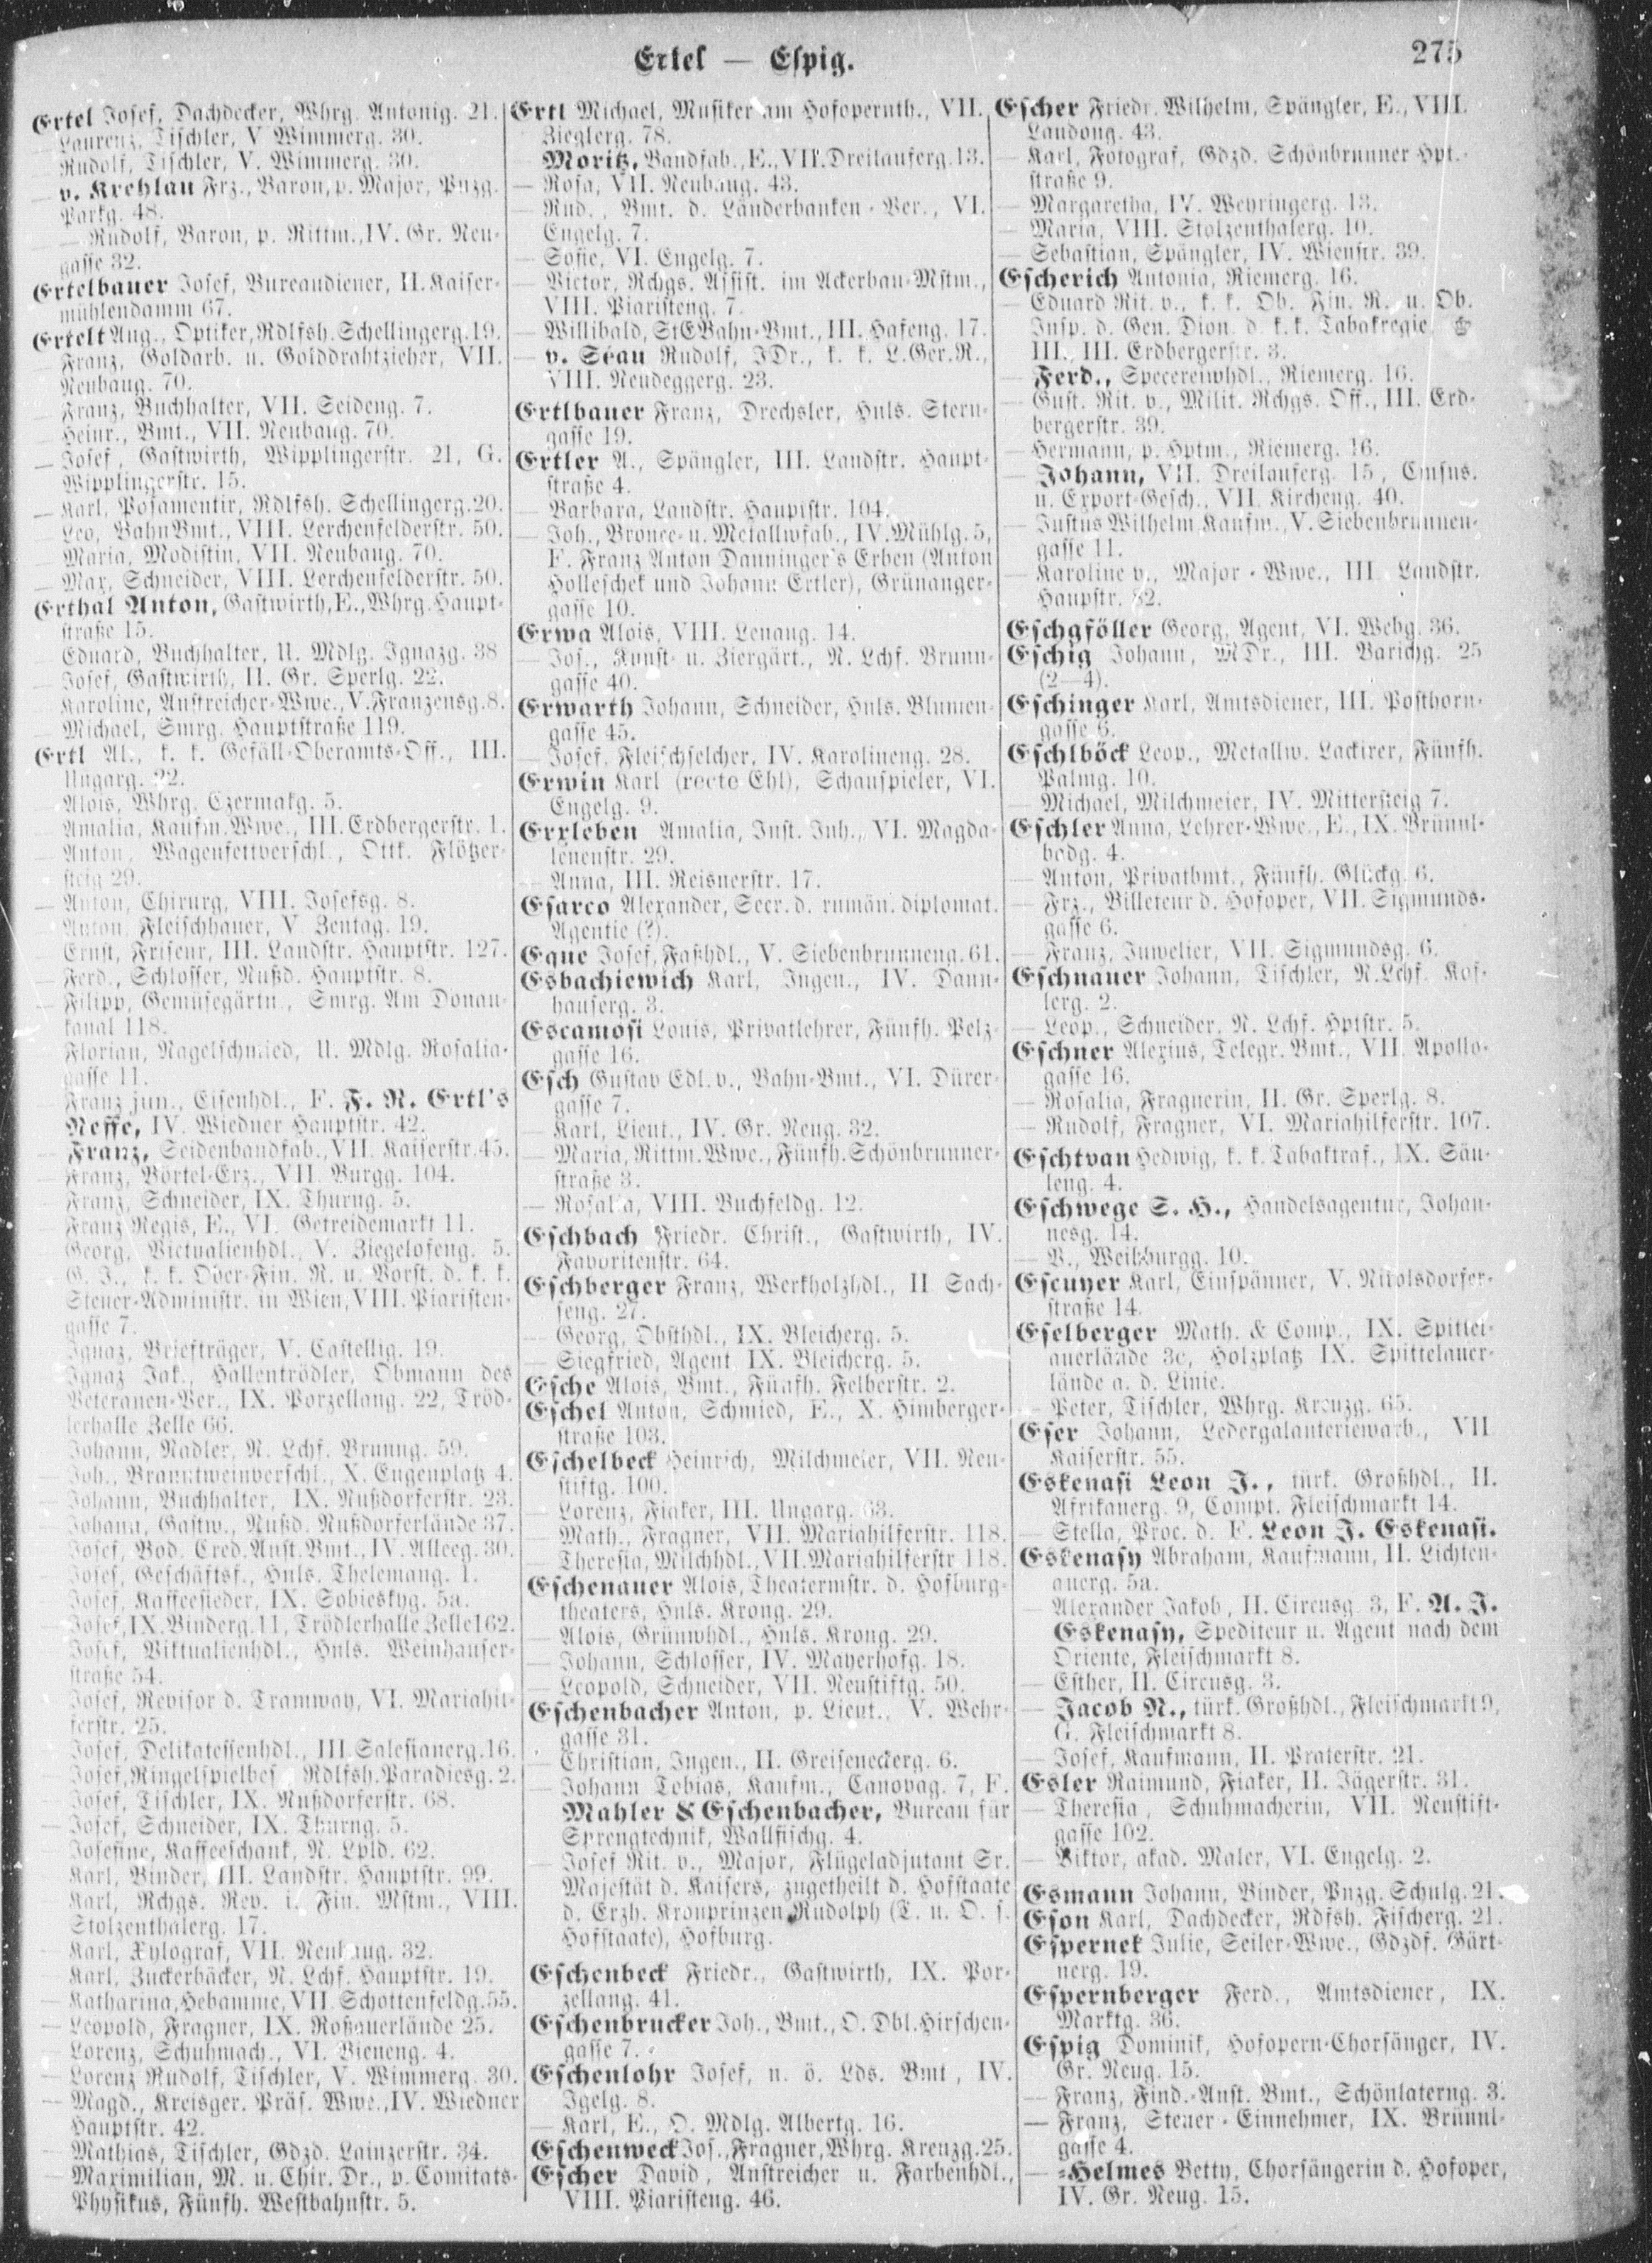 Ertel — Espig.
275
Ertel Josef, Dachdecker, Whrg. Antonig. 21.
— Laurenz, Tischler, V Wimmerg. 30.
— Rudolf, Tischler, V. Wimmerg. 30.
— v. Krehlau Frz., Baron, p. Major, Pnzg.
Parkg. 48.
— — Rudolf, Baron, p. Rittm., IV. Gr. Neu-
gasse 32.
Ertelbauer Josef, Bureaudiener, II. Kaiser-
mühlendamm 67.
Ertelt Aug., Optiker, Rdlfsh. Schellingerg. 19.
— Franz, Goldarb. u. Golddrahtzieher, VII.
Neubaug. 70.
— Franz, Buchhalter, VII. Seideng. 7.
— Heinr., Bmt., VII. Neubaug. 70.
— Josef, Gastwirth, Wipplingerstr. 21, G.
Wipplingerstr. 15.
— Karl, Posamentir, Rdlfsh. Schellingerg. 20.
— Leo, BahnBmt., VIII. Lerchenfelderstr. 50.
— Maria, Modistin, VII. Neubaug. 70.
— Max, Schneider, VIII. Lerchenfelderstr. 50.
Erthal Anton, Gastwirth, E., Whrg. Haupt-
straße 15.
— Eduard, Buchhalter, U. Mdlg. Ignazg. 38
— Josef, Gastwirth, II. Gr. Sperlg. 22.
— Karoline, Anstreicher-Wwe., V. Franzensg. 8.
— Michael, Smrg. Hauptstraße 119.
Ertl Al., k. k. Gefäll-Oberamts-Off., III.
Ungarg. 22.
— Alois, Whrg. Czermakg. 5.
— Amalia, Kaufm. Wwe., III. Erdbergerstr. 1.
— Anton, Wagenfettverschl., Ottk. Flötzer-
steig 29.
— Anton, Chirurg, VIII. Josefsg. 8.
— Anton, Fleischhauer, V Zentag. 19.
— Ernst, Friseur, III. Landstr. Hauptstr. 127.
— Ferd., Schlosser, Nußd. Hauptstr. 8.
— Filipp, Gemüsegärtn., Smrg. Am Donau-
kanal 118.
— Florian, Nagelschmied, U. Mdlg. Rosalia-
gasse 11.
— Franz jun., Eisenhdl., F. F. N. Ertl's
Neffe, IV. Wiedner Hauptstr. 42.
— Franz, Seidenbandfab., VII. Kaiserstr. 45.
— Franz, Börtel-Erz., VII. Burgg. 104.
— Franz, Schneider, IX. Thurng. 5.
— Franz Regis, E., VI. Getreidemarkt 11.
— Georg, Victualienhdl., V. Ziegelofeng. 5.
— G. J., k. k. Ober-Fin. R. u. Vorst. d. k. k.
Steuer-Administr. in Wien, VIII. Piaristen-
gasse 7.
— Ignaz, Briefträger, V. Castellig. 19.
— Ignaz Jak., Hallentrödler, Obmann des
Veteranen-Ver., IX. Porzellang. 22, Tröd-
lerhalle Zelle 66.
— Johann, Nadler, N. Lchf. Brunng. 59.
— Joh., Branntweinverschl., X. Eugenplatz 4.
— Johann, Buchhalter, IX. Nußdorferstr. 23.
— Johann, Gastw., Nußd. Nußdorferlände 37.
— Josef, Bod. Cred. Anst. Bmt., IV. Alleeg. 30.
— Josef, Geschäftsf., Hnls. Thelemang. 1.
— Josef, Kaffeesieder, IX. Sobieskyg. 5a.
— Josef, IX. Binderg. 11, Trödlerhalle Zelle 162.
— Josef, Viktualienhdl., Hnls. Weinhauser-
straße 54.
— Josef, Revisor d. Tramway, VI. Mariahil-
ferstr. 25.
— Josef, Delikatessenhdl., III. Salesianerg. 16.
— Josef, Ringelspielbes., Rdlfsh. Paradiesg. 2.
— Josef, Tischler, IX. Nußdorferstr. 68.
— Josef, Schneider, IX. Thurng. 5.
— Josefine, Kaffeeschank, N. Lpld. 62.
— Karl, Binder, III. Landstr. Hauptstr. 99.
— Karl, Rchgs. Rev. i. Fin. Mstm., VIII.
Stolzenthalerg. 17.
— Karl, Xylograf, VII. Neubaug. 32.
— Karl, Zuckerbäcker, N. Lchf. Hauptstr. 19.
— Katharina, Hebamme, VII. Schottenfeldg. 55.
— Leopold, Fragner, IX. Roßauerlände 25.
— Lorenz, Schuhmach., VI. Bieneng. 4.
— Lorenz Rudolf, Tischler, V. Wimmerg. 30.
— Magd., Kreisger. Präs. Wwe., IV. Wiedner
Hauptstr. 42.
— Mathias, Tischler, Gdzd. Lainzerstr. 34.
— Maximilian, M. u. Chir. Dr., p. Comitats-
Physikus, Fünfh. Westbahnstr. 5.
Ertl Michael, Musiker am Hofopernth., VII.
Zieglerg. 78.
— Moritz, Bandfab., E., VII. Dreilauferg. 13.
— Rosa, VII. Neubaug. 43.
— Rud., Bmt. d. Länderbanken-Ver., VI.
Engelg. 7.
— Sofie, VI. Engelg. 7.
— Victor, Rchgs. Assist. im Ackerbau-Mstm.,
VIII. Piaristeng. 7.
— Willibald, StEBahn-Bmt., III. Hafeng. 17.
— v. Seau Rudolf, JDr., k. k. L.Ger.R.,
VIII. Neudeggerg. 23.
Ertlbauer Franz, Drechsler, Hnls. Stern-
gasse 19.
Ertler A., Spängler, III. Landstr. Haupt-
straße 4.
— Barbara, Landstr. Hauptstr. 104.
— Joh., Bronce- u. Metallwfab., IV. Mühlg. 5,
F. Franz Anton Danninger's Erben (Anton
Holleschek und Johann Ertler), Grünanger-
gasse 10.
Erwa Alois, VIII. Lenaug. 14.
— Jos., Kunst- u. Ziergärt., N. Lchf. Brunn-
gasse 40.
Erwarth Johann, Schneider, Hnls. Blumen-
gasse 45.
— Josef, Fleischselcher, IV. Karolineng. 28.
Erwin Karl (recte Ehl), Schauspieler, VI.
Engelg. 9.
Erxleben Amalia, Inst. Inh., VI. Magda-
lenenstr. 29.
— Anna, III. Reisnerstr. 17.
Esarco Alexander, Secr. d. rumän. diplomat.
Agentie (?).
Eque Josef, Faßhdl., V. Siebenbrunneng. 61.
Esbachiewich Karl, Ingen., IV. Dann-
hauserg. 3.
Escamosi Louis, Privatlehrer, Fünfh. Pelz-
gasse 16.
Esch Gustav Edl. v., Bahn-Bmt., VI. Dürer-
gasse 7.
— Karl, Lieut., IV. Gr. Neug. 32.
— Maria, Rittm. Wwe., Fünfh. Schönbrunner-
straße 3.
— Rosalia, VIII. Buchfeldg. 12.
Eschbach Friedr. Christ., Gastwirth, IV.
Favoritenstr. 64.
Eschberger Franz, Werkholzhdl., II Sach-
seng. 27.
— Georg, Obsthdl., IX. Bleicherg. 5.
— Siegfried, Agent IX. Bleicherg. 5.
Esche Alois, Bmt., Fünfh. Felberstr. 2.
Eschel Anton, Schmied, E., X. Himberger-
straße 103.
Eschelbeck Heinrich, Milchmeier, VII. Neu-
stiftg. 100.
— Lorenz, Fiaker, III. Ungarg. 63.
— Math., Fragner, VII. Mariahilferstr. 118.
— Theresia, Milchhdl., VII. Mariahilferstr 118.
Eschenauer Alois, Theatermstr. d. Hofburg-
theaters, Hnls. Krong. 29.
— Alois, Grünwhdl., Hnls. Krong. 29.
— Johann, Schlosser, IV. Mayerhofg. 18.
— Leopold, Schneider, VII. Neustiftg. 50.
Eschenbacher Anton, p. Lieut., V. Wehr-
gasse 31.
— Christian, Ingen., II. Greiseneckerg. 6.
— Johann Tobias, Kaufm., Canovag. 7, F.
Mahler & Eschenbacher, Bureau für
Sprengtechnik, Wallfischg. 4.
— Josef Rit. v., Major, Flügeladjutant Sr.
Majestät d. Kaisers, zugetheilt d. Hofstaate
d. Erzh. Kronprinzen Rudolph (T. u. O. s.
Hofstaate), Hofburg.
Eschenbeck Friedr., Gastwirth, IX. Por-
zellang. 41.
Eschenbrucker Joh., Bmt., O. Dbl. Hirschen-
gasse 7.
Eschenlohr Josef, n. ö. Lds. Bmt, IV.
Igelg. 8.
— Karl, E., O. Mdlg. Albertg. 16.
Eschenweck Jos., Fragner, Whrg. Kreuzg. 25.
Escher David, Anstreicher u. Farbenhdl.,
VIII. Piaristeng. 46.
Escher Friedr. Wilhelm, Spängler, E., VIII.
Laudong. 43.
— Karl, Fotograf, Gdzd. Schönbrunner Hpt.-
straße 9.
— Margaretha, IV. Weyringerg. 13.
— Maria, VIII. Stolzenthalerg. 10.
— Sebastian, Spängler, IV. Wienstr. 39.
Escherich Antonia, Riemerg. 16.
— Eduard Rit. v., k. k. Ob. Fin. R. u. Ob.
Insp. d. Gen. Dion. d. k. k. Tabakregie,
III., III. Erdbergerstr. 3.
— Ferd., Specereiwhdl., Riemerg. 16.
— Gust. Rit. v., Milit. Rchgs. Off., III. Erd-
bergerstr. 39.
— Hermann, p. Hptm., Riemerg. 16.
— Johann, VII. Dreilauferg. 15, Cmsns.
u. Export-Gesch., VII. Kircheng. 40.
— Justus Wilhelm Kaufm., V. Siebenbrunnen-
gasse 11.
— Karoline v., Major-Wwe., III. Landstr.
Haupstr. 82.
Eschgföller Georg, Agent, VI. Webg. 36.
Eschig Johann, MDr., III. Barichg. 25
(2—4).
Eschinger Karl, Amtsdiener, III. Posthorn-
gasse 6.
Eschlböck Leop., Metallw. Lackirer, Fünfh.
Palmg. 10.
— Michael, Milchmeier, IV. Mittersteig 7.
Eschler Anna, Lehrer-Wwe., E., IX. Brünnl-
badg. 4.
— Anton, Privatbmt., Fünfh. Glückg. 6.
— Frz., Billeteur d. Hofoper, VII. Sigmunds-
gasse 6.
— Franz, Juwelier, VII. Sigmundsg. 6.
Eschnauer Johann, Tischler, N. Lchf. Kof-
lerg. 2.
— Leop., Schneider, N. Lchf. Hptstr. 5.
Eschner Alexius, Telegr. Bmt., VII. Apollo-
gasse 16.
— Rosalia, Fragnerin, II. Gr. Sperlg. 8.
— Rudolf, Fragner, VI. Mariahilferstr. 107.
Eschtvan Hedwig, k. k. Tabaktraf., IX. Säu-
leng. 4.
Eschwege S. H., Handelsagentur, Johan-
nesg. 14.
— V., Weihburgg. 10.
Escuyer Karl, Einspänner, V. Nikolsdorfer-
straße 14.
Eselberger Math. & Comp., IX. Spittel-
auerlände 3c, Holzplatz IX. Spittelauer-
lände a. d. Linie.
— Peter, Tischler, Whrg. Kreuzg. 65.
Eser Johann, Ledergalanteriewarb., VII
Kaiserstr. 55.
Eskenasi Leon J., türk. Großhdl., II.
Afrikanerg. 9, Compt. Fleischmarkt 14.
— Stella, Proc. d. F. Leon J. Eskenasi.
Eskenasy Abraham, Kaufmann, II. Lichten-
auerg. 5a.
— Alexander Jakob, II. Circusg. 3, F. A. J.
Eskenasy, Spediteur u. Agent nach dem
Oriente, Fleischmarkt 8.
— Esther, II. Circusg. 3.
— Jacob N., türk. Großhdl., Fleischmarkt 9,
G. Fleischmarkt 8.
— Josef, Kaufmann, II. Praterstr. 21.
Esler Raimund, Fiaker, II. Jägerstr. 31.
— Theresia, Schuhmacherin, VII. Neustift-
gasse 102.
— Viktor, akad. Maler, VI. Engelg. 2.
Esmann Johann, Binder, Pnzg. Schulg. 21.
Eson Karl, Dachdecker, Rdfsh. Fischerg. 21.
Espernek Julie, Seiler-Wwe., Gdzdf. Gärt-
nerg. 19.
Espernberger Ferd., Amtsdiener, IX.
Marktg. 36.
Espig Dominik, Hofopern-Chorsänger, IV.
Gr. Neug. 15.
— Franz, Find.-Anst. Bmt., Schönlaterng. 3.
— Franz, Steuer-Einnehmer, IX. Brünnl-
gasse 4.
— -Helmes Betty, Chorsängerin d. Hofoper,
IV. Gr. Neug. 15.